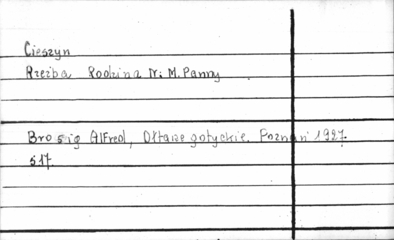 Cieszyn
Rzeźba Rodzina N. M. Panny
Brosig Alfred, Ołtarze gotyckie. Poznań 1927.
s17.